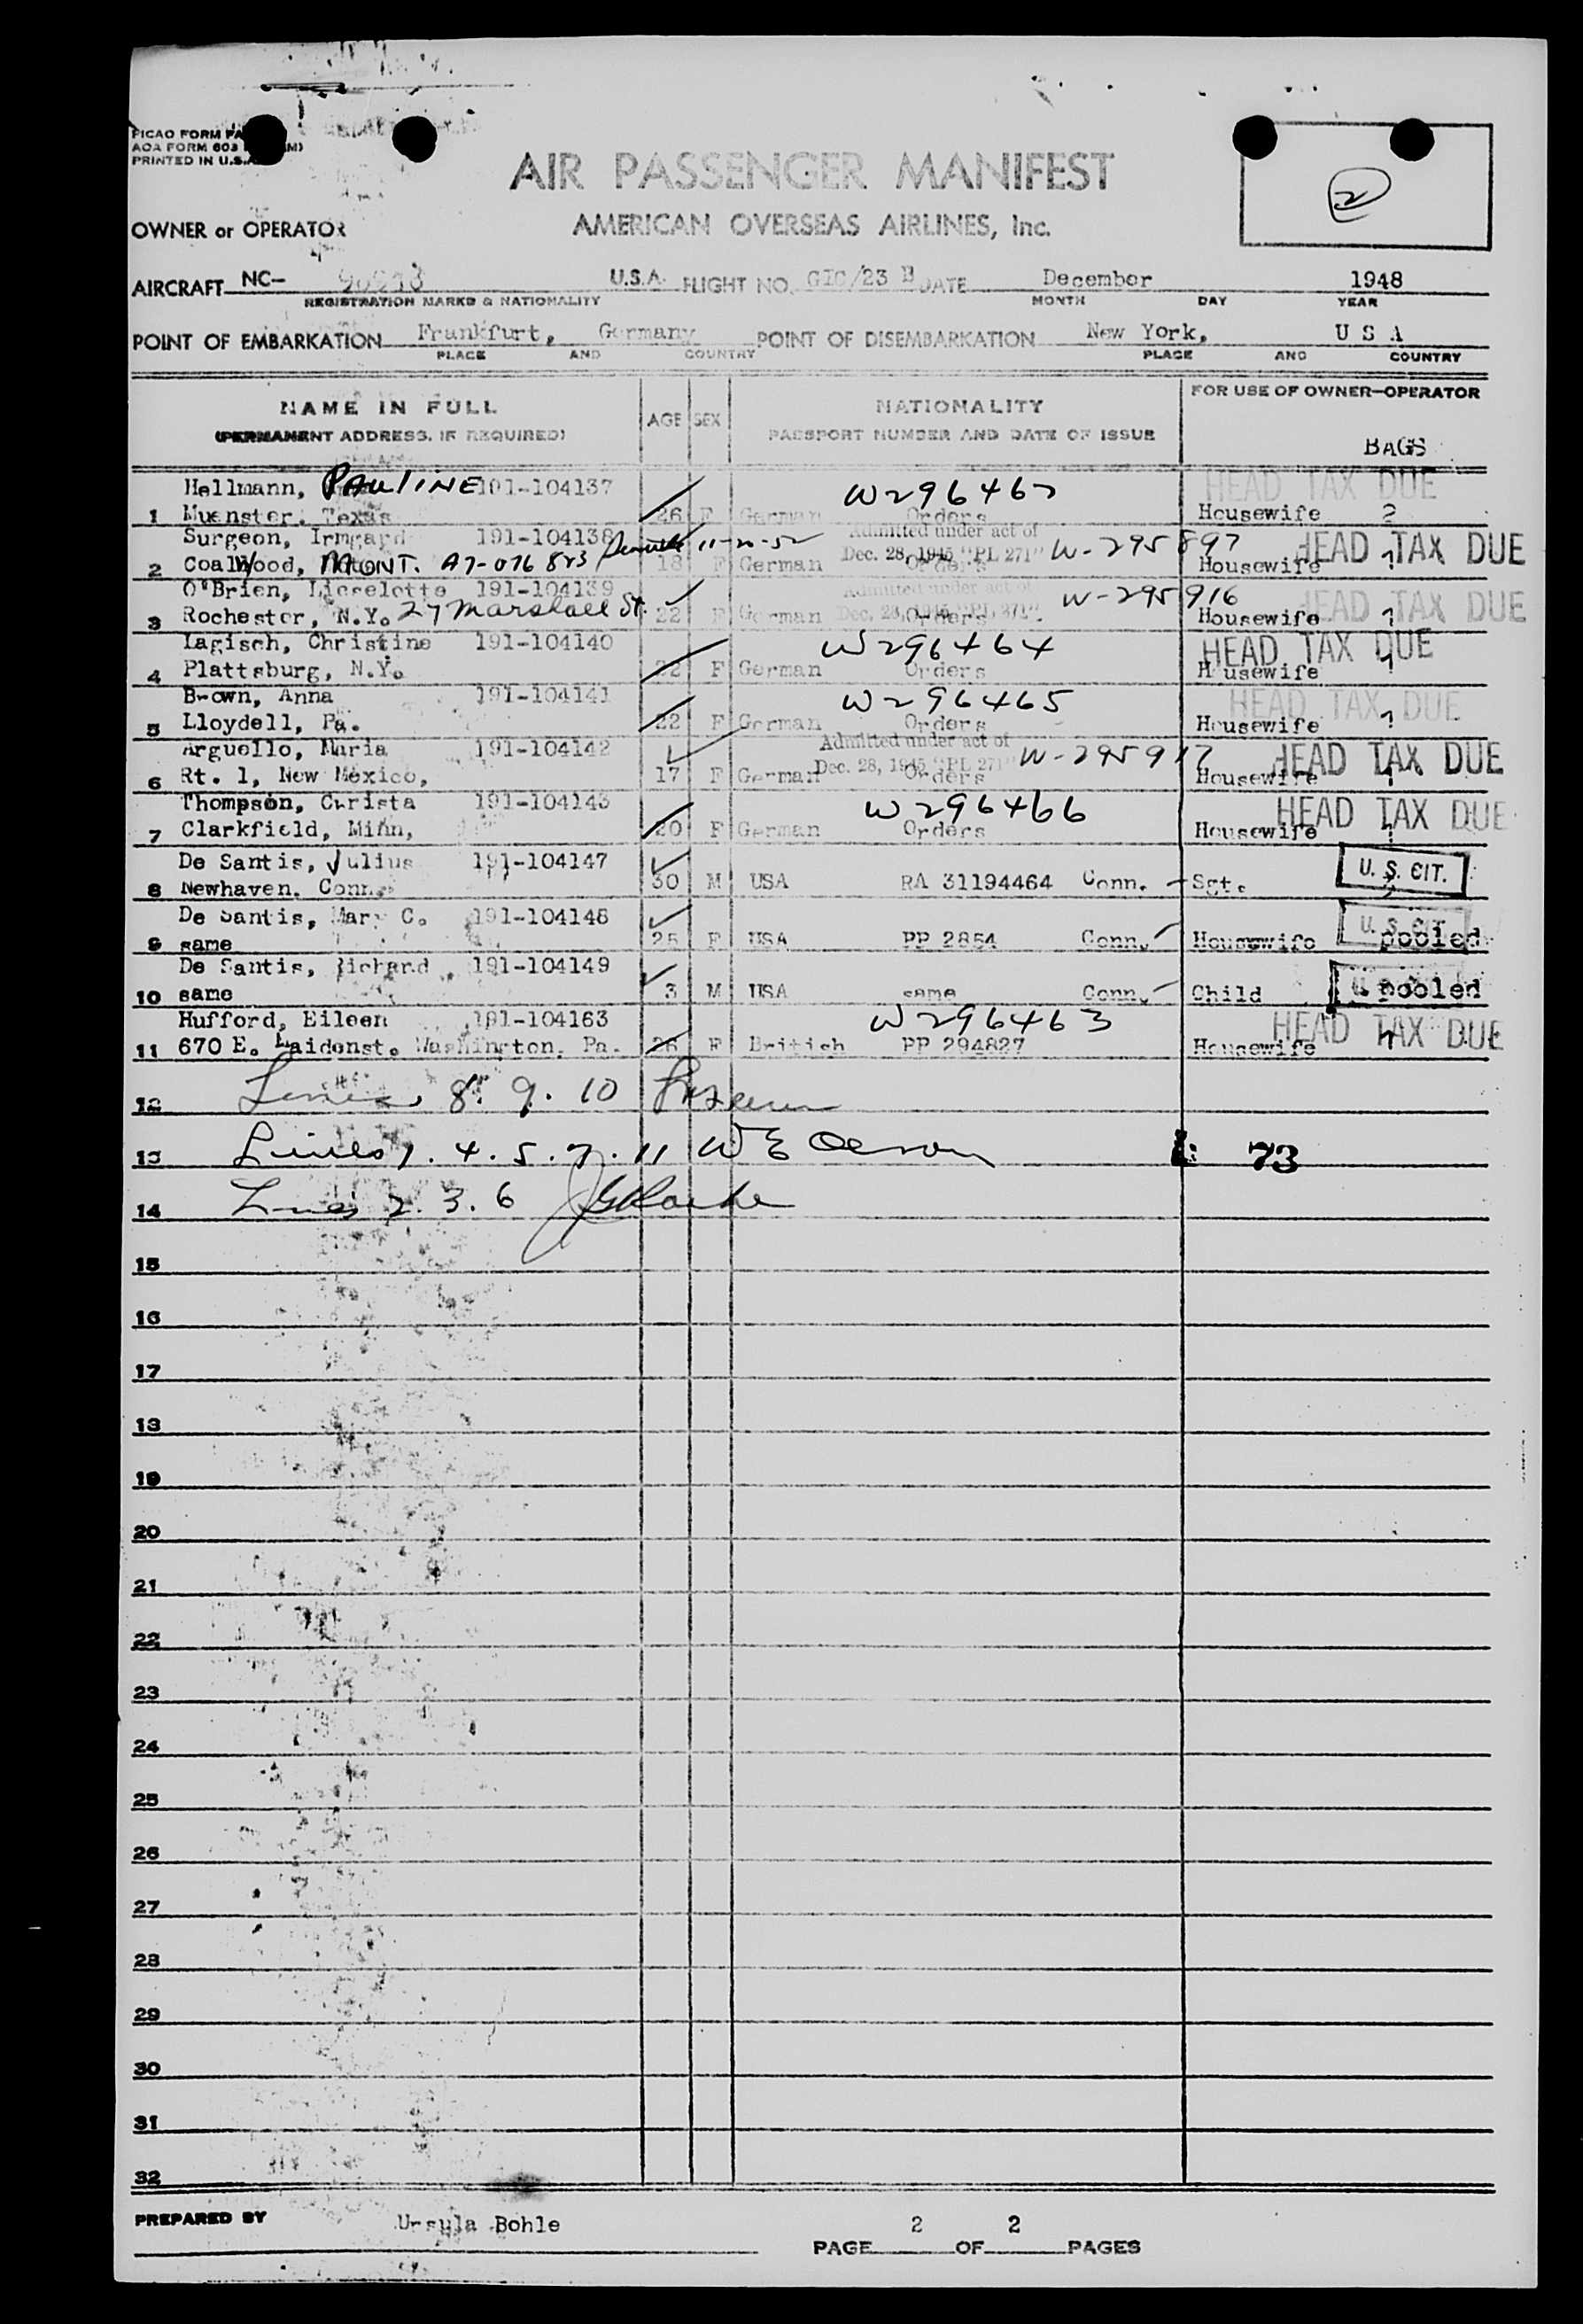 PICAO FORM PA
AOA FORM 603
PRINTED IN U.S.A.
AIR PASSENGER MANIFEST
2
OWNER or OPERATOR AMERICAN OVERSEAS AIRLINES, Inc.
AIRCRAFT NC- U.S.A. FLIGHT NO. GIC/23 DATE December 1948
REGISTRATION MARKS & NATIONALITY MONTH DAY YEAR
POINT OF EMBARKATION Frankfurt, Germany POINT OF DISEMBARKATION New York, U S A
PLACE AND COUNTRY PLACE AND COUNTRY
NAME IN FULL AGE SEX NATIONALITY FOR USE OF OWNER-OPERATOR
(PERMANENT ADDRESS, IF REQUIRED) PASSPORT NUMBER AND DATE OF ISSUE
BAGS
Hellmann, PAULINE 191-104137 HEAD TAX DUE
1 Muenster, Texas 26 F German Orders Housewife 2
Surgeon, Irmgard 191-104138 11-21-52 Admitted under act of W-295897 HEAD TAX DUE
2 Coalwood, MONT. A7-076 823 18 F German Dec. 28, 1945 "PL 271" Orders Housewife 1
O'Brien, Lieselotte 191-104139 Admitted under act of W-295916 HEAD TAX DUE
3 Rochester, N.Y. 27 Marshall St. 22 F German Dec. 28, 1945 "PL 271" Orders Housewife 1
Lagisch, Christine 191-104140 W296464 HEAD TAX DUE
4 Plattsburg, N.Y. 22 F German Orders Housewife 1
Brown, Anna 191-104141 W296465 HEAD TAX DUE
5 Lloydell, Pa. 22 F German Orders Housewife 1
Arguello, Maria 191-104142 Admitted under act of W-295917 HEAD TAX DUE
6 Rt. 1, New Mexico, 17 F German Dec. 28, 1945 "PL 271" Orders Housewife 1
Thompson, Christa 191-104143 W296466 HEAD TAX DUE
7 Clarkfield, Minn, 20 F German Orders Housewife 1
De Santis, Julius 191-104147 U. S. CIT.
8 Newhaven, Conn. 30 M USA RA 31194464 Conn. Sgt.
De Santis, Mary C. 191-104148 U. S. CIT.
9 same 25 F USA PP 2854 Conn. Housewife pooled
De Santis, Richard 191-104149
10 same 3 M USA same Conn. Child pooled
Hufford, Eileen 191-104163 W296463 HEAD TAX DUE
11 670 E. Maidenst. Washington, Pa. 26 F British PP 294827 Housewife
12 Lines 8. 9. 10
13 Lines 1. 4. 5. 7. 11 73
14 Lines 2. 3. 6
15
16
17
18
19
20
21
22
23
24
25
26
27
28
29
30
31
32
PREPARED BY Ursula Bohle PAGE 2 OF 2 PAGES